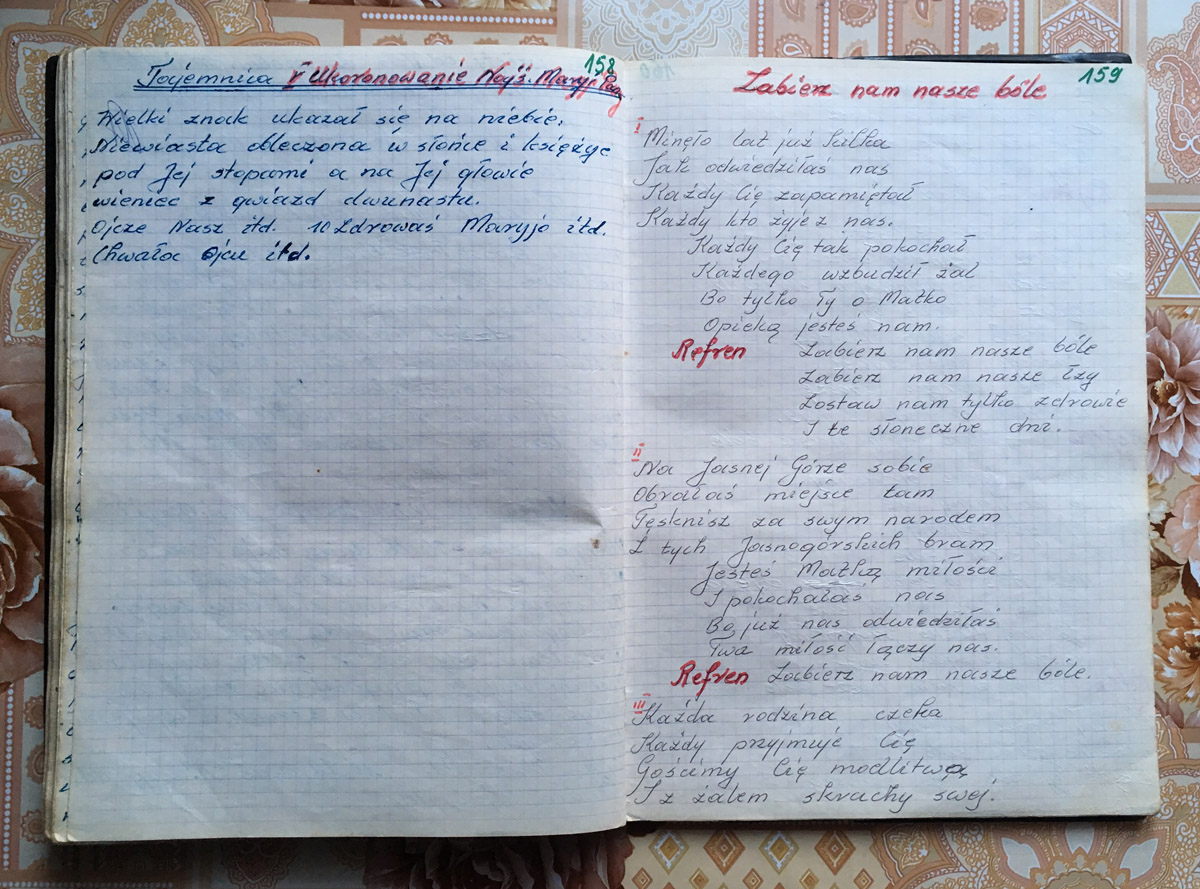 158
Tajemnica V Ukoronowanie Najś. Maryji Pany
Wielki znak ukazał się na niebie,
Niewiasta obleczona w słońce i księżyc
pod Jej stopami a na Jej głowie
wieniec z gwiazd dwunastu.
Ojcze Nasz itd. 10 Zdrowaś Maryjo itd.
Chwała Ojcu itd.
159
Zabierz nam nasze bóle
I
Minęło lat już kilka
Jak odwiedziłaś nas
Każdy Cię zapamiętał
Każdy kto żyje z nas.
Każdy Cię tak pokochał
Każdego wzbudził żal
Bo tylko Ty o Matko
Opieką jesteś nam.
Refren Zabierz nam nasze bóle
Zabierz nam nasze łzy
Zostaw nam tylko zdrowie
I te słoneczne dni.
II
Na Jasnej Górze sobie
Obrałaś miejsce tam
Tęsknisz za swym narodem
Z tych Jasnogórskich bram
Jesteś Matką miłości
I pokochałaś nas
Bo już nas odwiedziłaś
Twa miłość łączy nas.
Refren Zabierz nam nasze bóle.
III
Każda rodzina czeka
Każdy przyjmuje Cię
Gościmy Cię modlitwą
I z żalem skrachy swej.